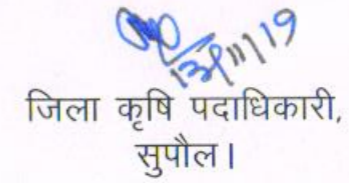 13/11/19
जिला कृषि पदाधिकारी,
सुपौल।